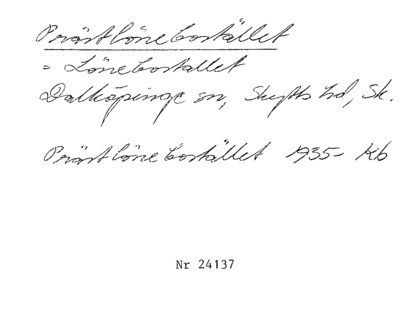 Prästlönebostället
= Lönebostället
Dalköpinge sn, Skytts hd, Sk.
Prästlönebostället 1935- Kb
Nr 24137